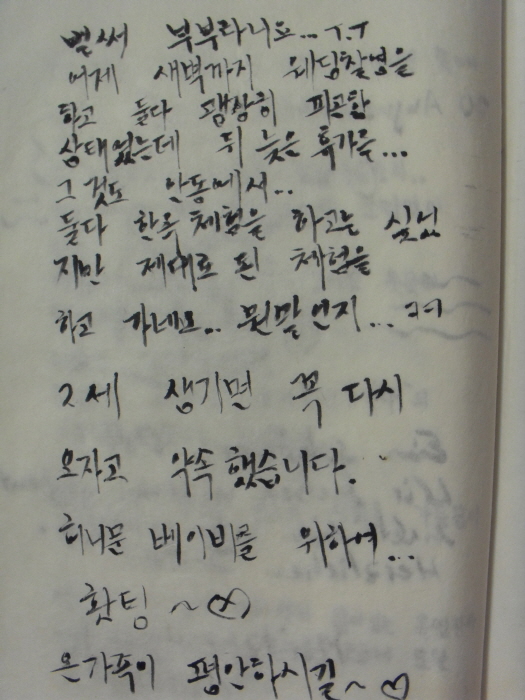 벌써 부부라니요... T.T
어제 새벽까지 웨딩촬영을
하고 둘다 굉장히 피곤한
상태였는데 뒤 늦은 휴가를...
그것도 안동에서..
둘다 한옥 체험을 하고는 싶었
지만 제대로 된 체험을
하고 가네요.. 뭔말인지... ㅋㅋ
2세 생기면 꼭 다시
오자고 약속했습니다.
허니문 베이비를 위하여...
홧팅 ~ ♡
온가족이 평안하시길~ ♡